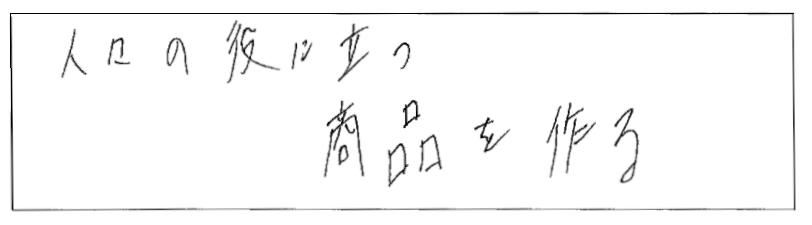 人口の役に立つ
商品を作る